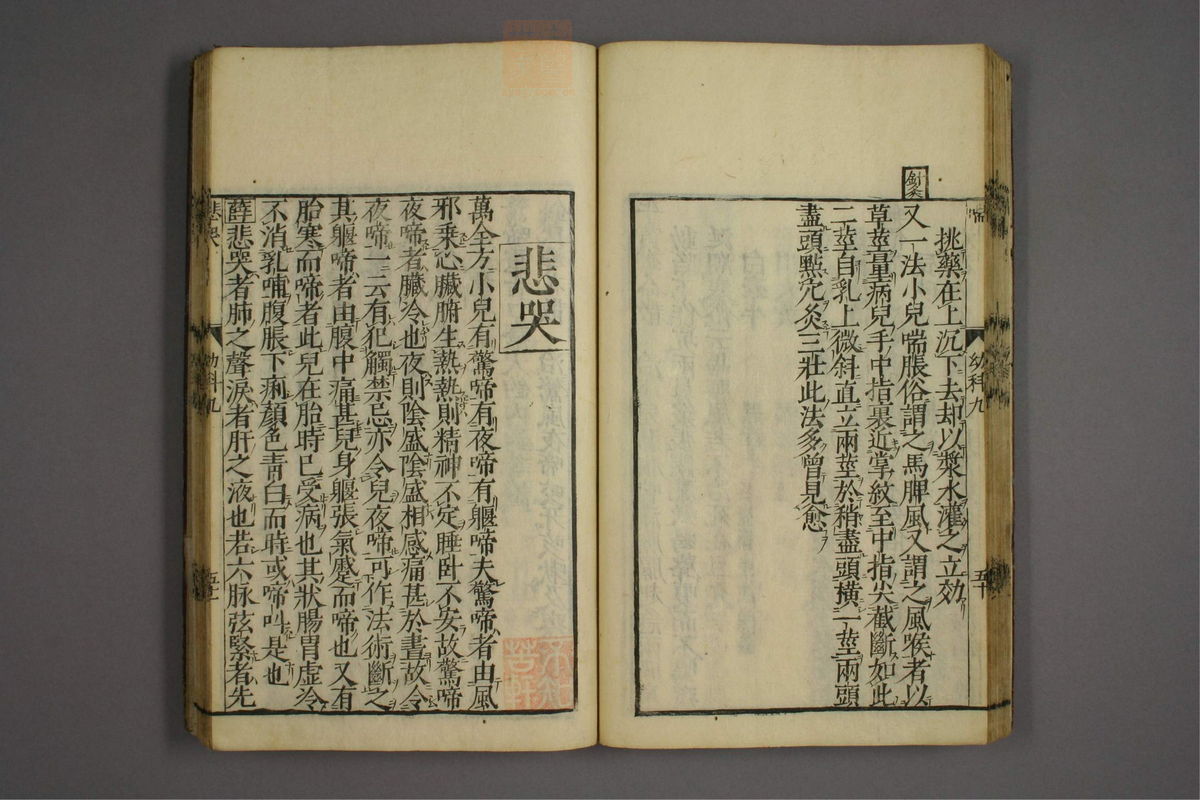 挑藥在上沉下去却以漿水灌之立効
針灸
又一法小兒喘脹俗謂之馬脾風又謂之風喉者以
草莖量病兒手中指裏近掌紋至中指尖截斷如此
二莖自乳上微斜直立兩莖於稍盡頭横一莖兩頭
盡頭點穴灸三壯此法多曾見愈
幼科九
五十
悲哭
萬全方小兒有驚啼有夜啼有軀啼夫驚啼者由風
邪乗心臓腑生熱熱則精神不定睡卧不安故驚啼
夜啼者臓冷也夜則陰盛陰盛相感痛甚於晝故令
夜啼一云有犯觸禁忌亦令兒夜啼可作法術斷之
其軀啼者由腹中痛甚兒身軀張氣蹙而啼也又有
胎寒而啼者此兒在胎時已受病也其狀腸胃虚冷
不消乳哺腹脹下痢顔色青白而時或啼叫是也
薛悲哭者肺之聲淚者肝之液也若六脉弦緊者先
悲哭
幼科九